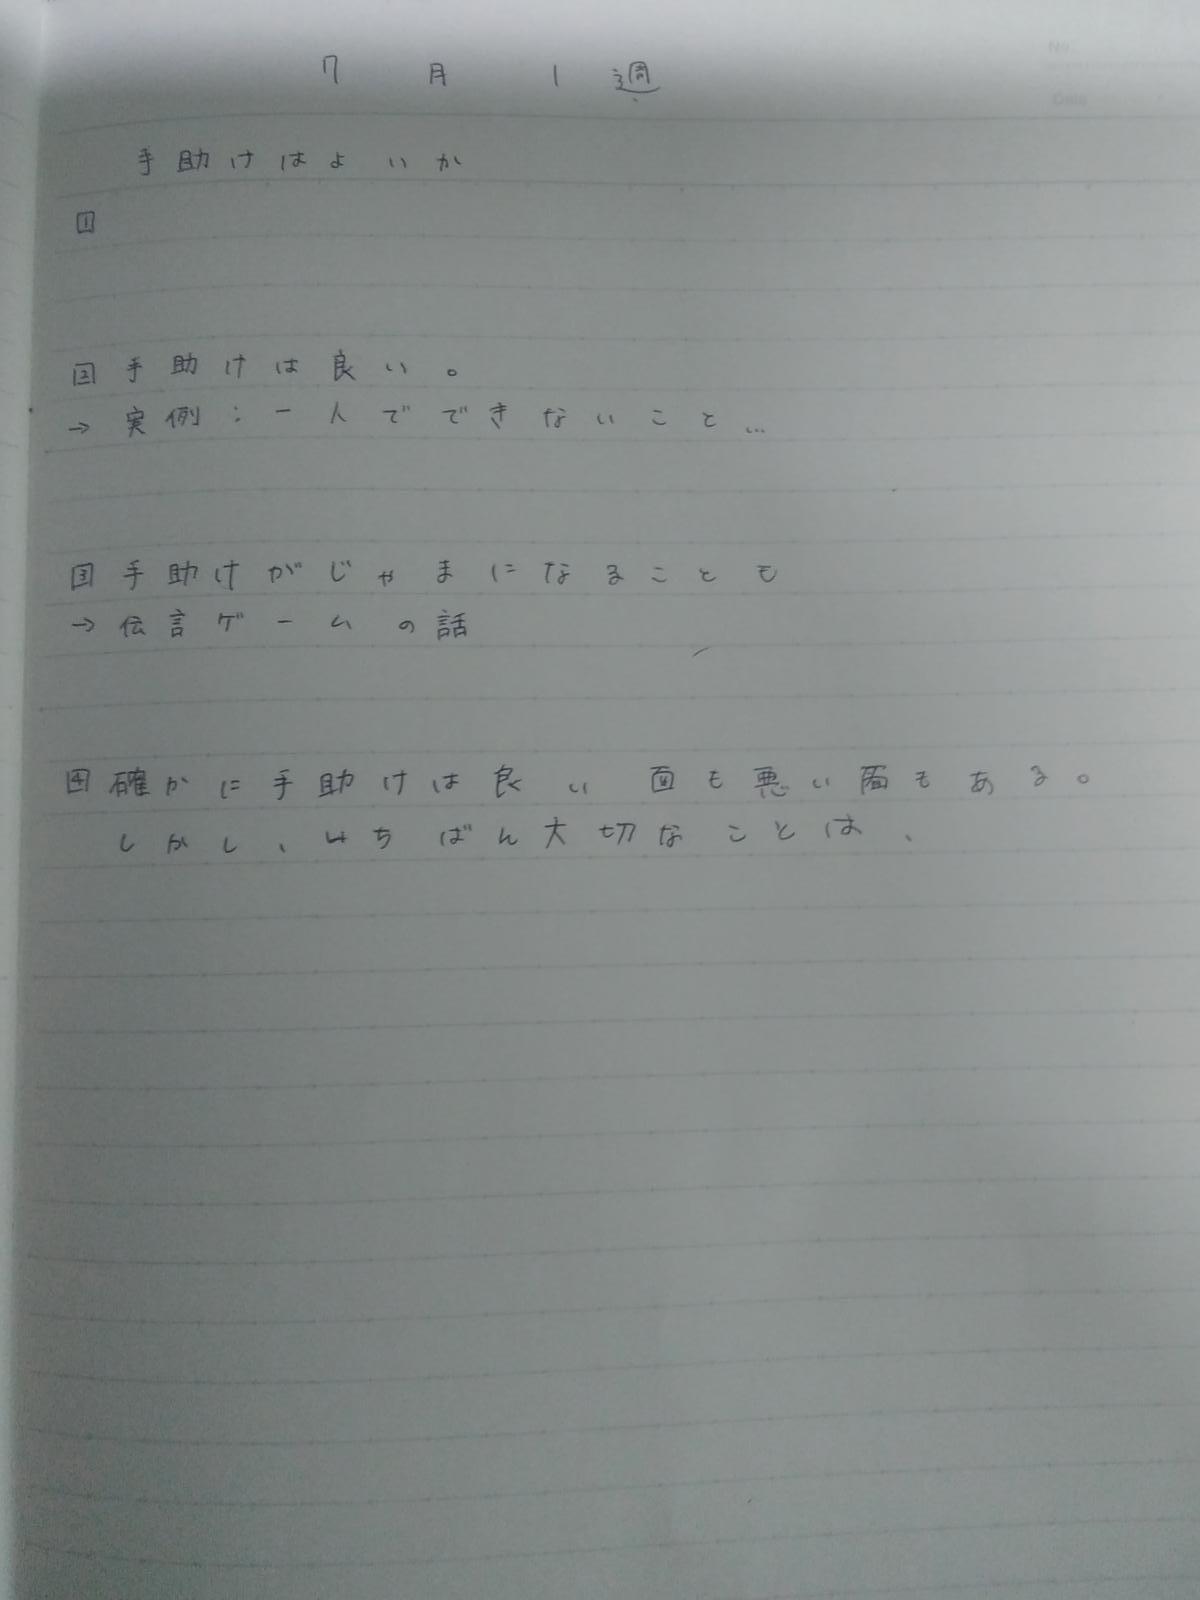 No.
Date
7月1週
手助けはよいか
1
2 手助けは良い。
→実例:一人でできないこと…
3 手助けがじゃまになることも
→伝言ゲームの話
4 確かに手助けは良い面も悪い面もある。
しかし、いちばん大切なことは、